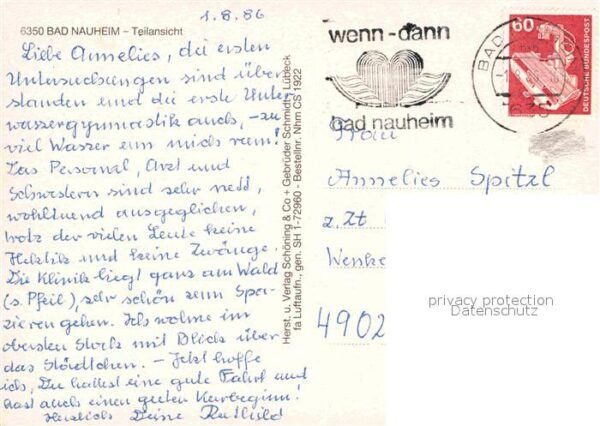 1.8.86
6350 BAD NAUHEIM – Teilansicht
Liebe Annelies, die ersten
Untersuchungen sind über-
standen und die erste Unter-
wassergymnastik auch, – zu
viel Wasser um mich rum!
Das Personal, Arzt und
Schwestern sind sehr nett,
wohltuend ausgeglichen,
trotz der vielen Leute keine
Hektik und keine Zwänge.
Die Klinik liegt ganz am Wald
(s. Pfeil), sehr schön zum Spa-
zierengehen. Ich wohne im
obersten Stock mit Blick über
das Städtchen. – Jetzt hoffe
ich, Du hattest eine gute Fahrt und
hast auch einen guten Kurbeginn!
Herzlich Deine Ruthild
Herst. u. Verlag Schöning & Co + Gebrüder Schmidt, Lübeck
fa Luftaufn., gen. SH 1-72960 - Bestellnr. Nhm CS 1922
wenn-dann
bad nauheim
BAD
60
DEUTSCHE BUNDESPOST
Frau
Annelies Spitzl
z. Zt
4902
privacy protection
Datenschutz